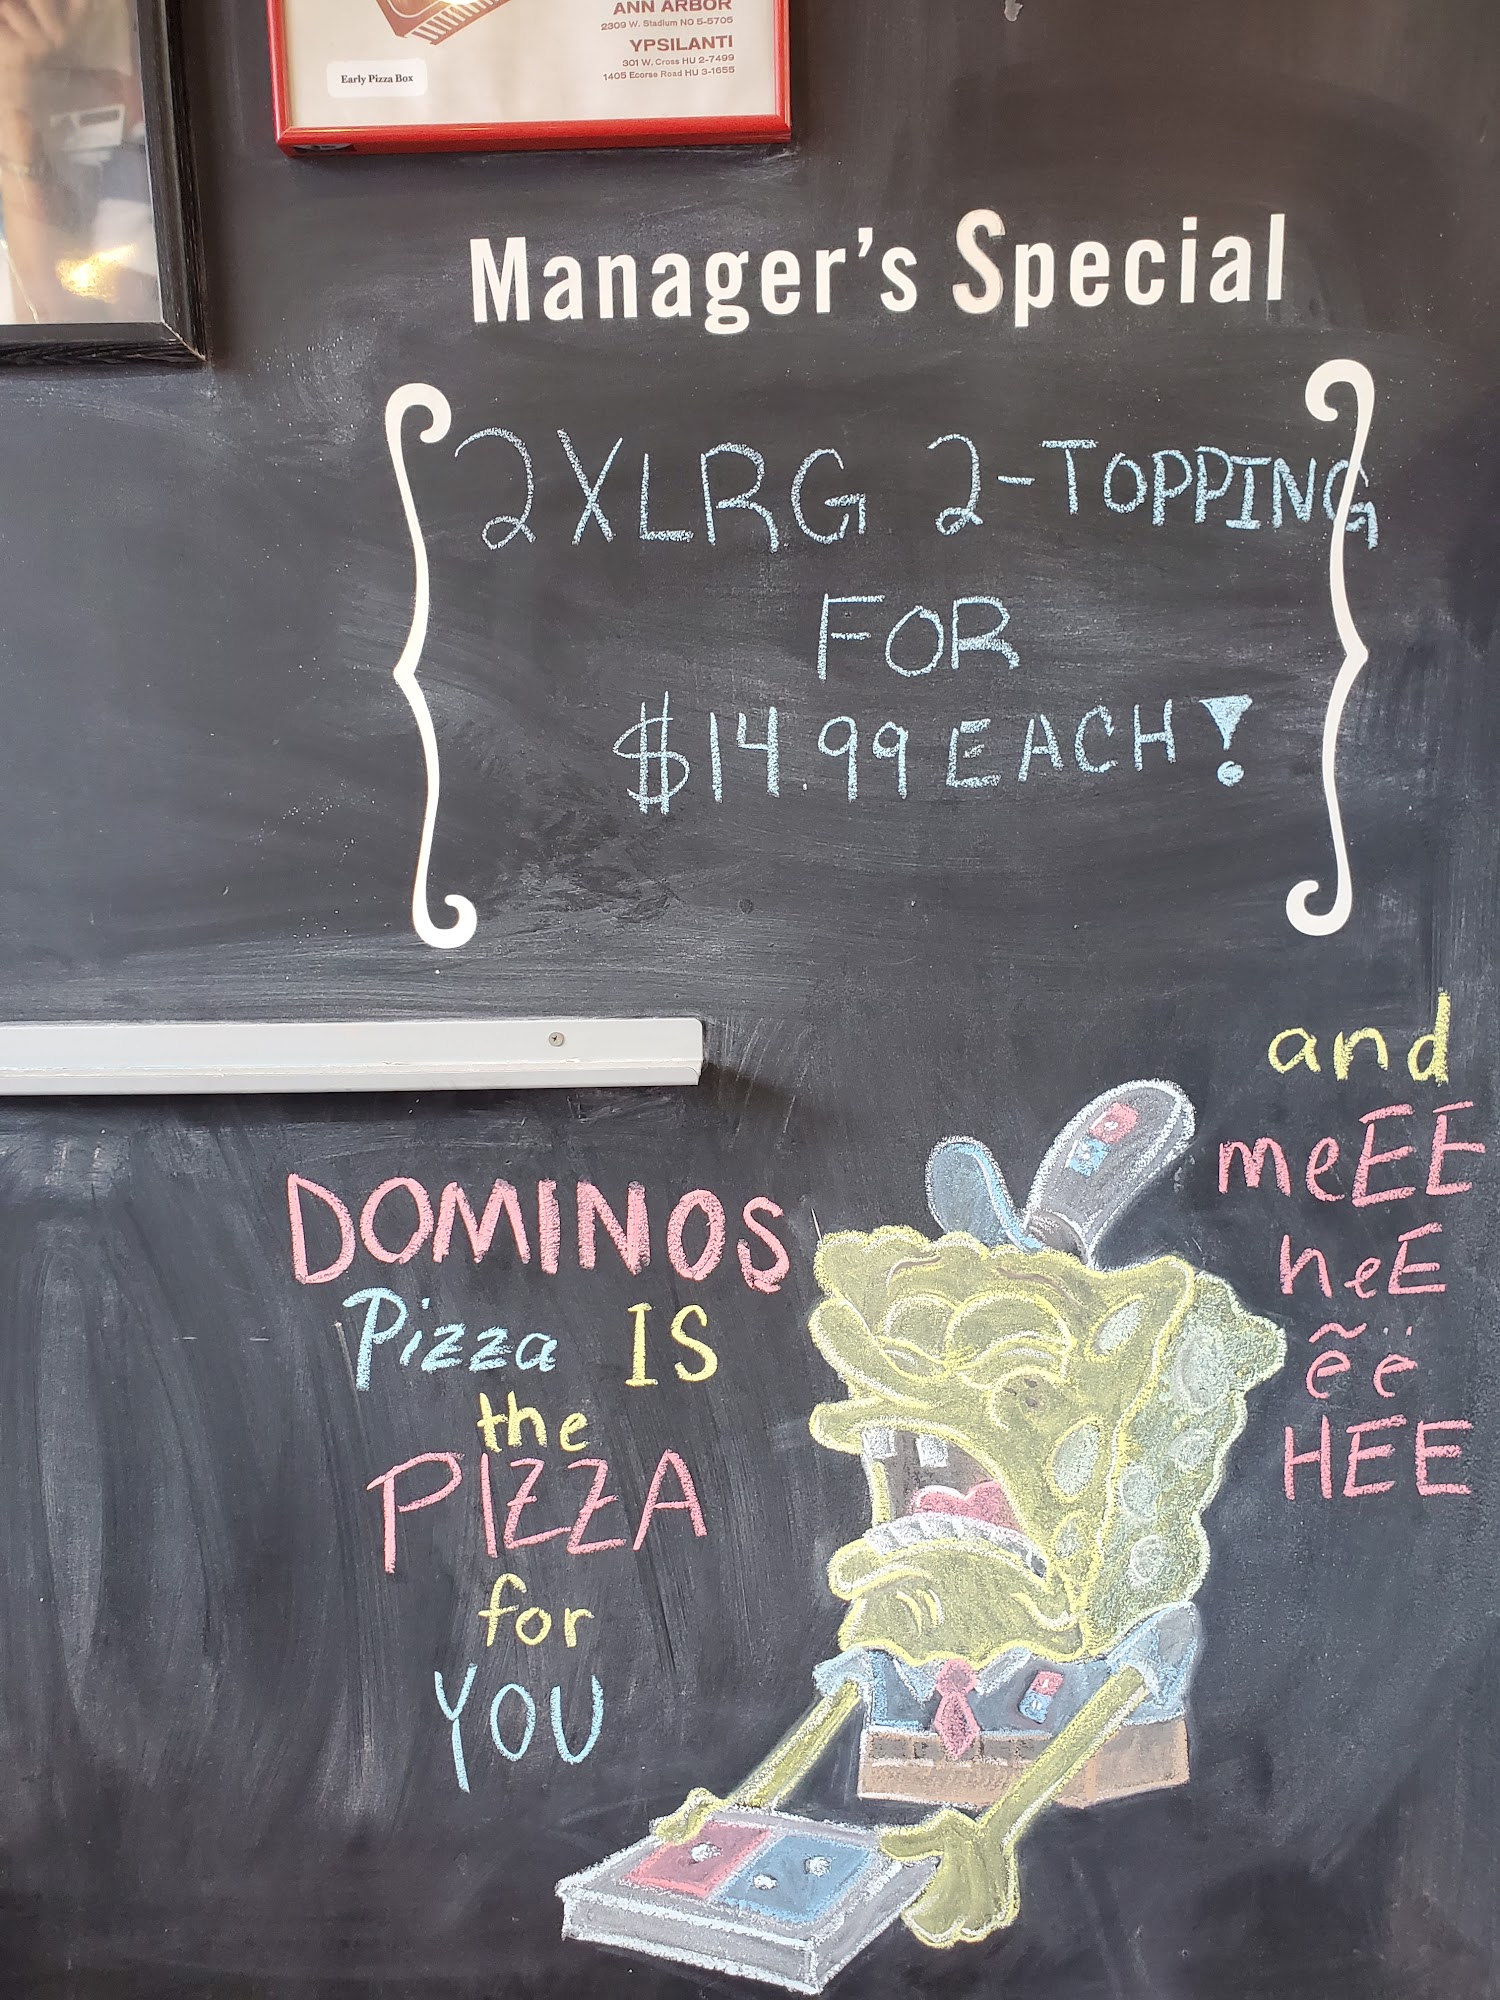 ANN ARBOR
2309 W. Stadium NO 5-5705
YPSILANTI
301 W. Cross HU 2-7499
1405 Ecorse Road HU 3-1655
Early Pizza Box
Manager's Special
2XLRG 2-TOPPING
FOR
$14.99 EACH!
DOMINOS
Pizza IS
the
PIZZA
for
YOU
and
meEE
heE
ẽ ë
HEE